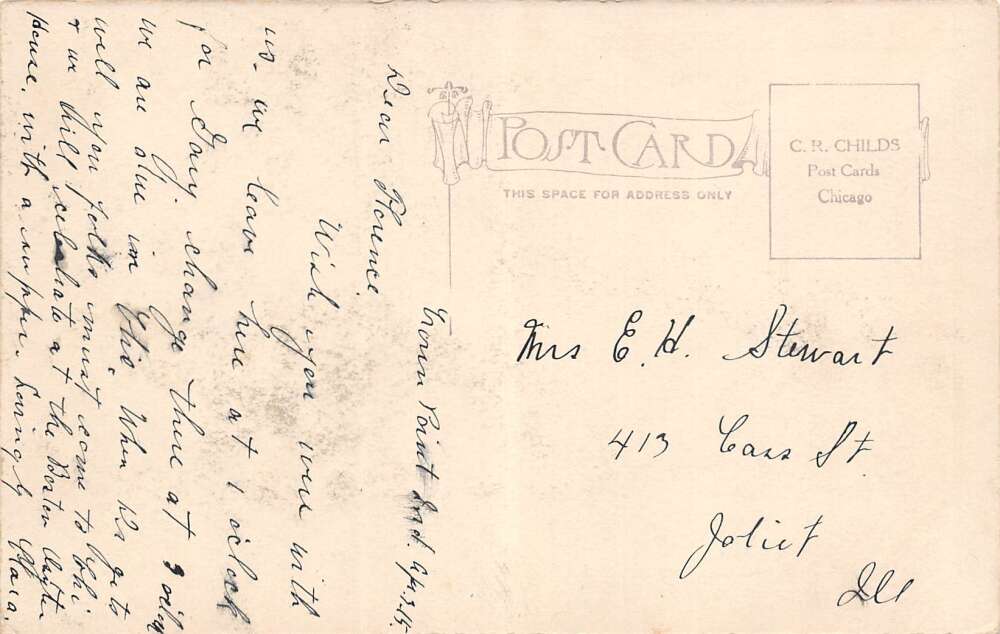 POST CARD
THIS SPACE FOR ADDRESS ONLY
C. R. CHILDS
Post Cards
Chicago
Mrs E. H. Stewart
413 Cass St
Joliet
Ill
Crown Point Ind.
Dear Florence
Wish you were with
us. we leave here at 1 oclock
for Gary change there at 3 oclock
we are due in Chi. When he gets
well you folks must come to Chi
& we will celebrate at the Boston Oyster
House, with a supper. Lovingly Clara.